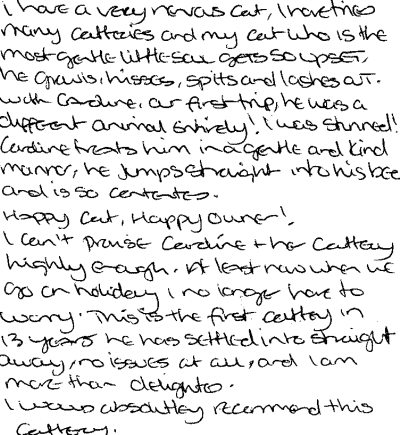 I have a very nervous cat, I have tried
many catteries and my cat who is the
most gentle little soul gets so upset,
he growls, hisses, spits and lashes out.
with Caroline, our first trip, he was a
different animal entirely! I was stunned!
Caroline treats him in a gentle and kind
manner, he jumps straight into his bed
and is so contented.
Happy Cat, Happy Owner!
I can't praise Caroline + her Cattery
highly enough. At least now when we
go on holiday I no longer have to
worry. This is the first cattery in
13 years he has settled into straight
away, no issues at all, and I am
more than delighted.
I would absolutley recommend this
Cattery.